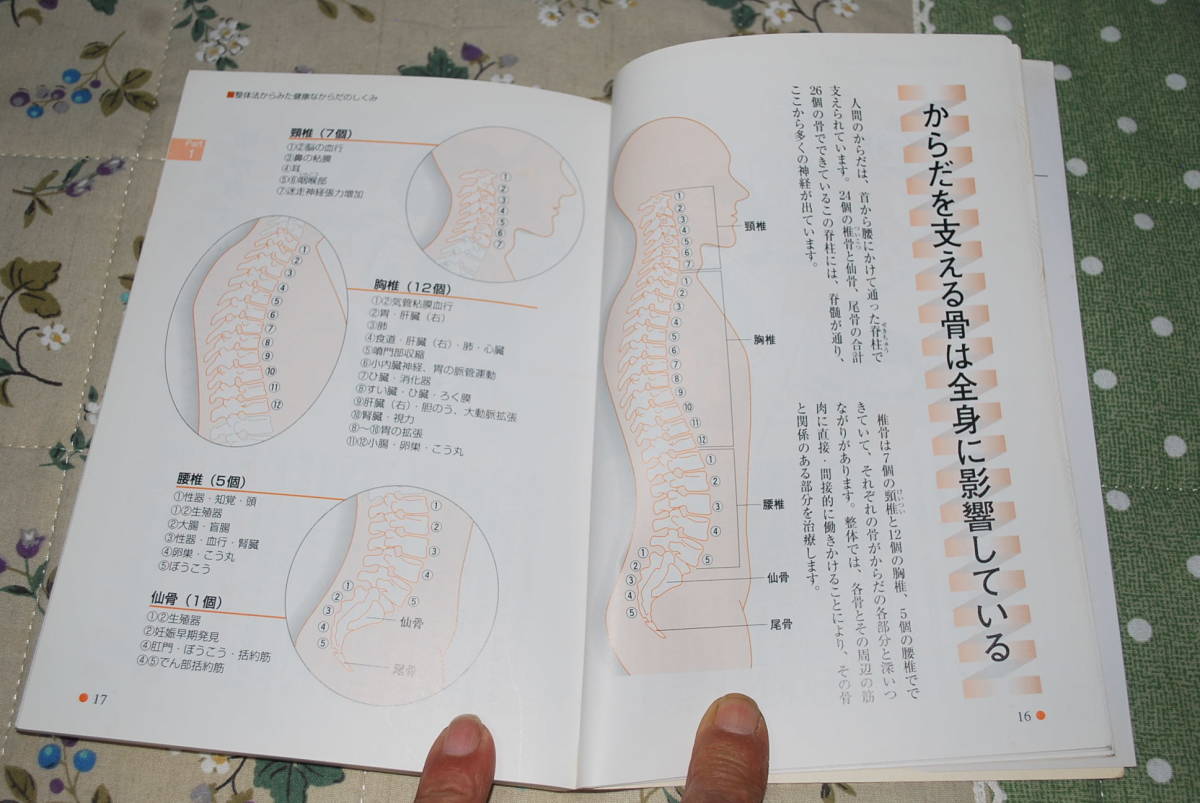 からだを支える骨は全身に影響している
人間のからだは、首から腰にかけて通った脊柱で
せきちゅう
支えられています。24個の椎骨と仙骨、尾骨の合計
ついこつ
26個の骨でできているこの脊柱には、脊髄が通り、
ここから多くの神経が出ています。
椎骨は7個の頸椎と12個の胸椎、5個の腰椎でで
けいつい
きていて、それぞれの骨がからだの各部分と深いつ
ながりがあります。整体では、各骨とその周辺の筋
肉に直接・間接的に働きかけることにより、その骨
と関係のある部分を治療します。
①
②
③
④
⑤
⑥
⑦
頸椎
①
②
③
④
⑤
⑥
⑦
⑧
⑨
⑩
⑪
⑫
胸椎
①
②
③
④
⑤
腰椎
①
②
③
④
⑤
仙骨
尾骨
16
■整体法からみた健康なからだのしくみ
Part
1
頸椎（7個）
①②脳の血行
③鼻の粘膜
④耳
⑤⑥咽喉部
⑦迷走神経張力増加
①
②
③
④
⑤
⑥
⑦
胸椎（12個）
①②気管粘膜血行
②胃・肝臓（右）
③肺
④食道・肝臓（右）・肺・心臓
⑤噴門部収縮
⑥小内臓神経、胃の脈管運動
⑦ひ臓・消化器
⑧すい臓・ひ臓・ろく膜
⑨肝臓（右）・胆のう、大動脈拡張
⑩腎臓・視力
⑧～⑩胃の拡張
⑪⑫小腸・卵巣・こう丸
①
②
③
④
⑤
⑥
⑦
⑧
⑨
⑩
⑪
⑫
腰椎（5個）
①性器・知覚・頭
①②生殖器
②大腸・盲腸
③性器・血行・腎臓
④卵巣・こう丸
⑤ぼうこう
仙骨（1個）
①②生殖器
②妊娠早期発見
④肛門・ぼうこう・括約筋
④⑤でん部括約筋
①
②
③
④
⑤
①
②
③
④
⑤
仙骨
尾骨
17